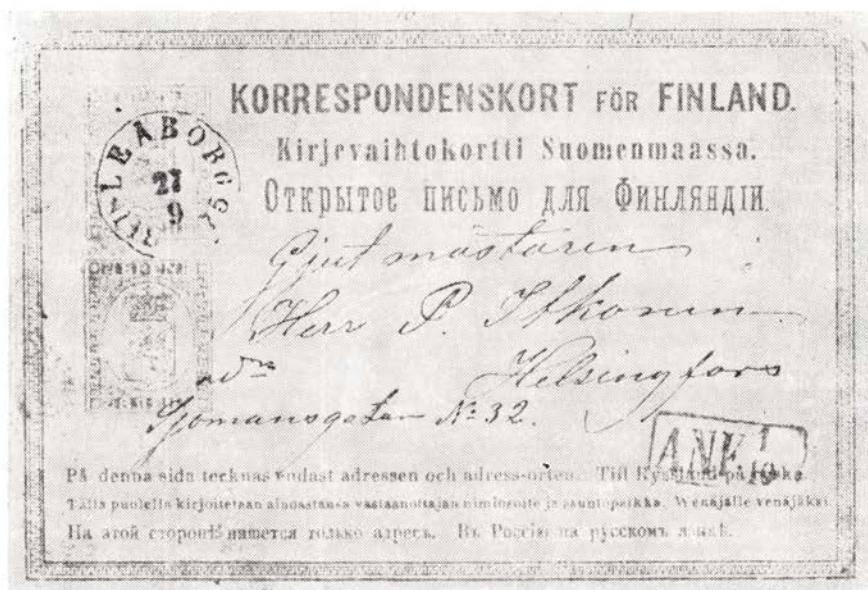 KORRESPONDENSKORT FÖR FINLAND.
Kirjevaihtokortti Suomenmaassa.
Открытое письмо для Финляндіи.
ULEÅBORG
27
9
Gjutmästaren
Herr P. Itkonen
adrs Helsingfors
Sjömansgatan № 32.
ANK
På denna sida tecknas endast adressen och adress-orten. Till Ryssland på ryska.
Tällä puolella kirjoitetaan ainoastansa vastaanottajan nimi osoite ja asuntopaikka. Wenäjälle venäjäksi.
На этой сторонѣ пишется только адресъ. Въ Россію на русскомъ языкѣ.